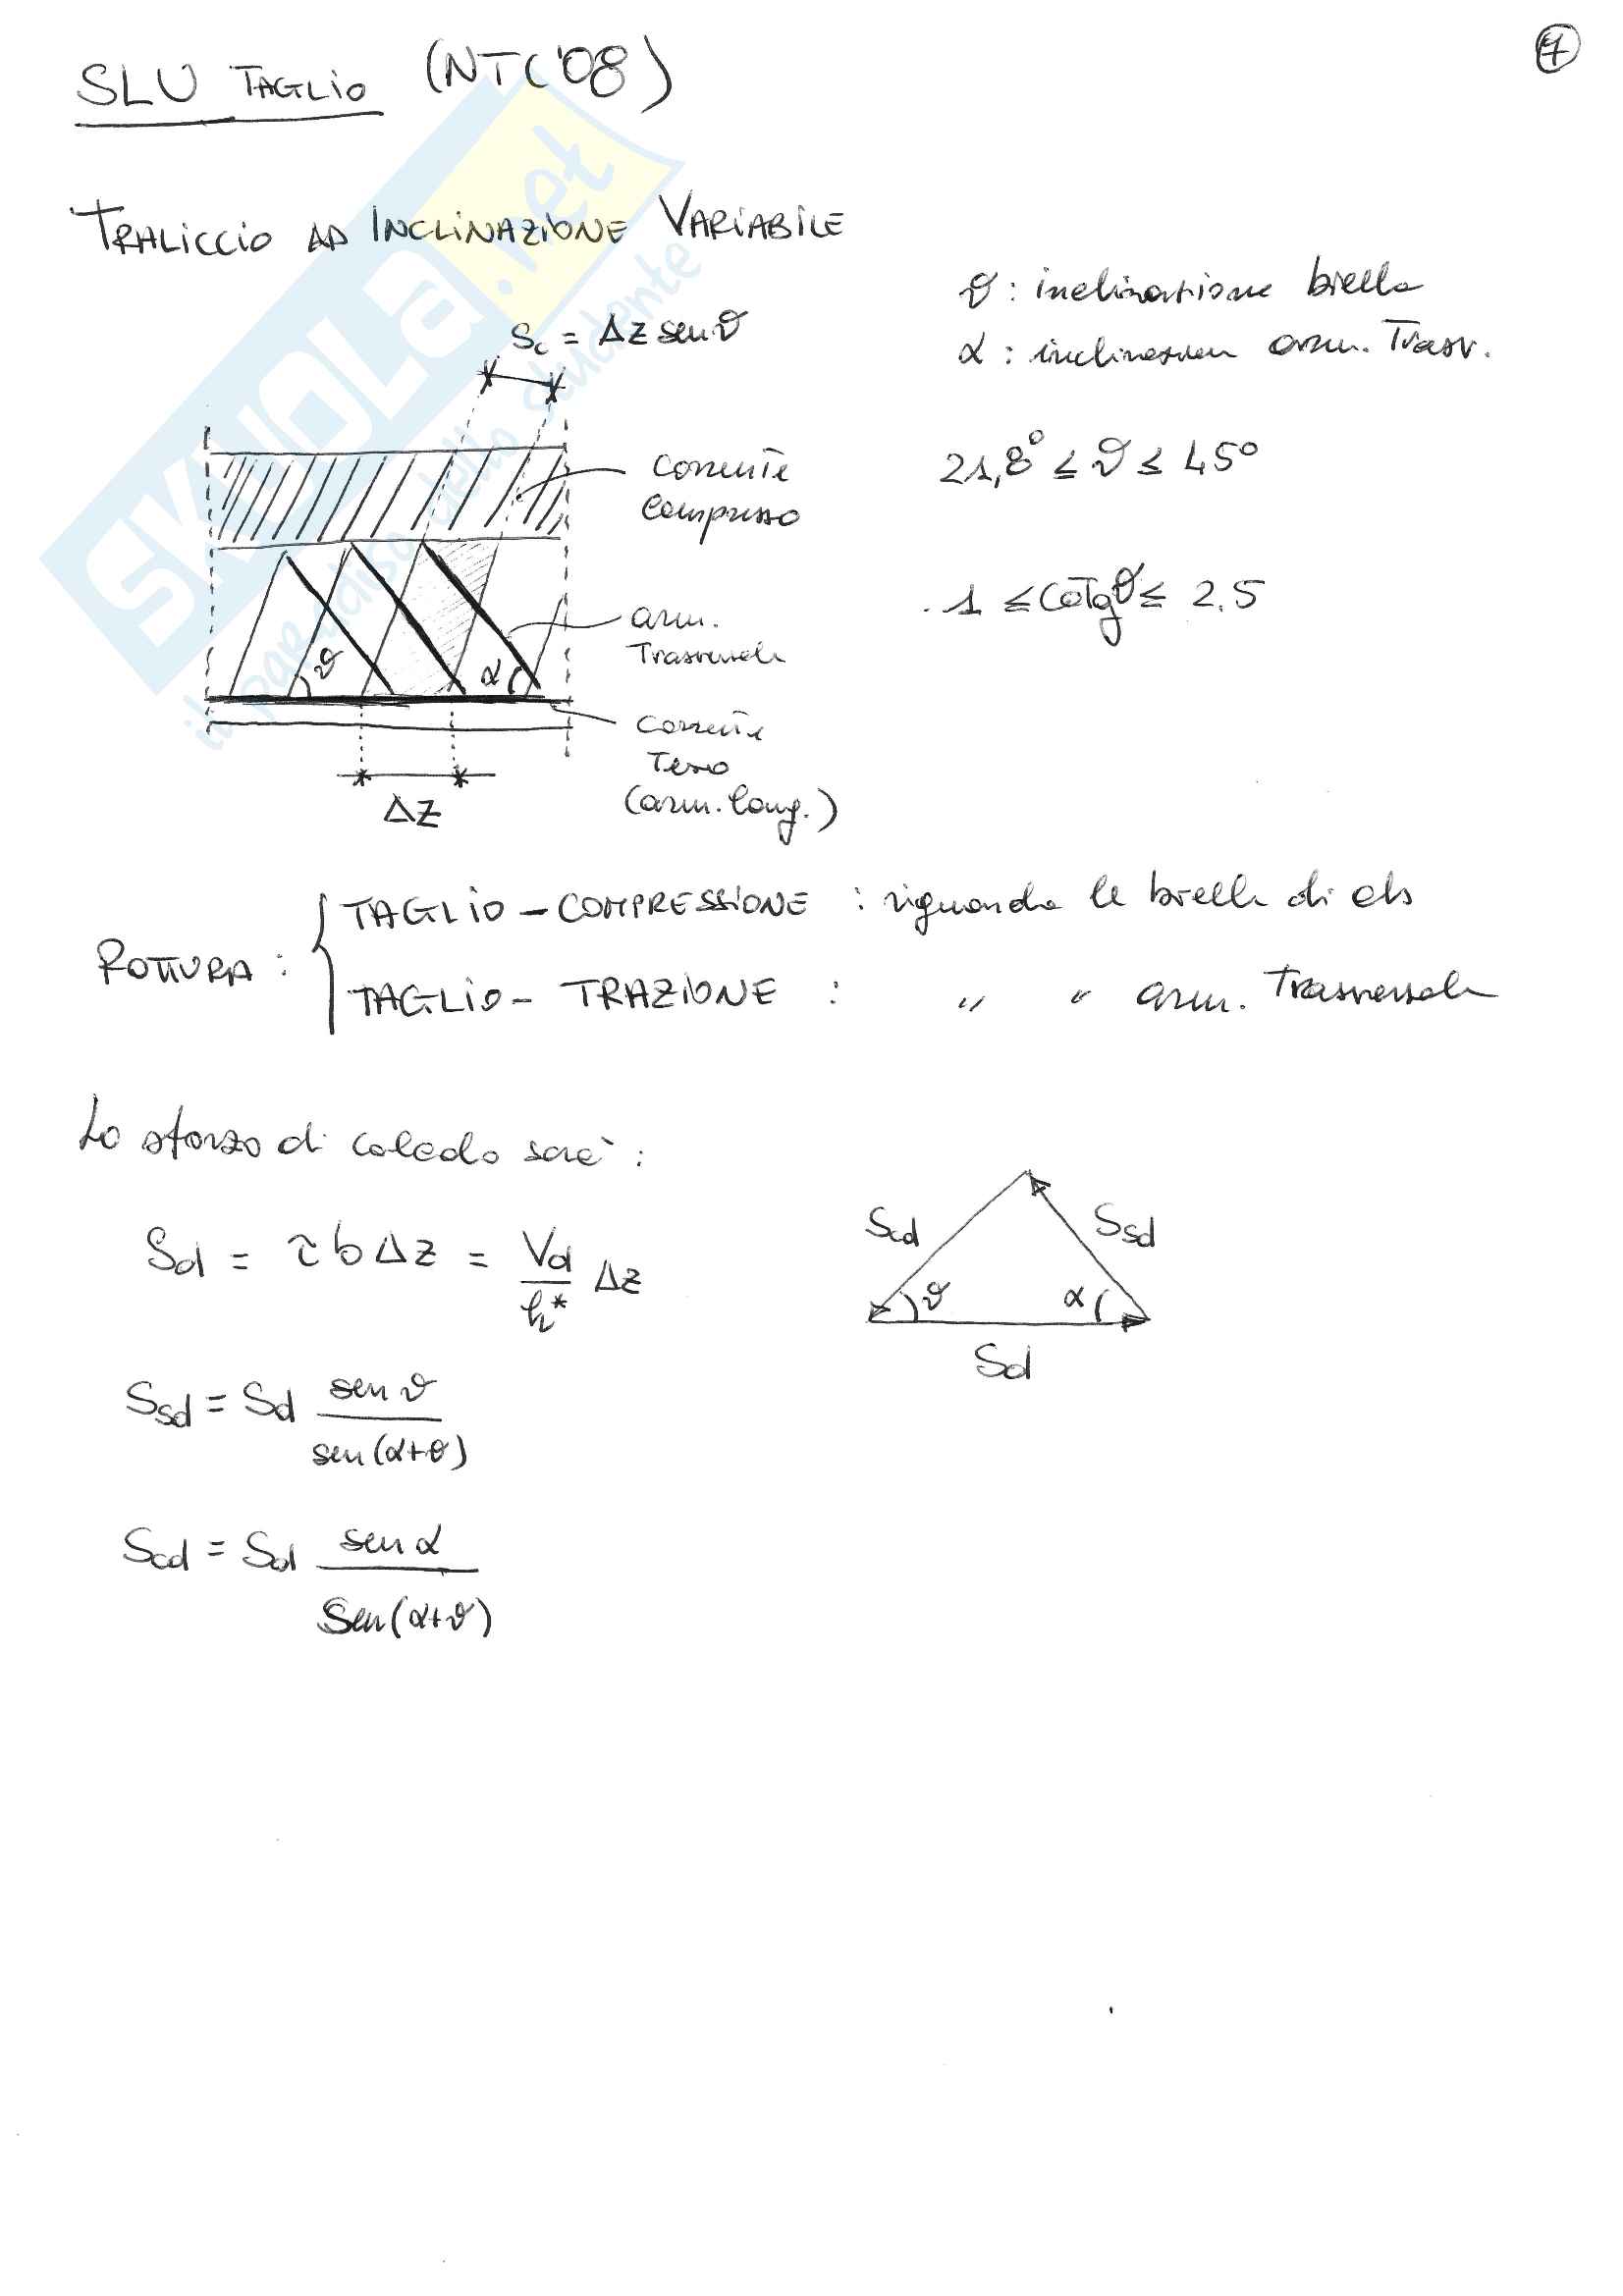 SLU TAGLIO (NTC'08)
1
TRALICCIO AD INCLINAZIONE VARIABILE
ϑ: inclinazione biella
α: inclinazion arm. Trasv.
Sc = Δz senϑ
21,8° ≤ ϑ ≤ 45°
corrente
compresso
1 ≤ cotgϑ ≤ 2.5
arm.
Trasversale
ϑ
α
corrente
Teso
(arm. long.)
Δz
ROTTURA: { TAGLIO-COMPRESSIONE : riguarda le bielle di cls
TAGLIO-TRAZIONE : " " arm. Trasversale
Lo sforzo di calcolo sarà:
Sd = τ b Δz = Vd/h* Δz
Scd
Ssd
ϑ
α
Sd
Ssd = Sd senϑ/sen(α+θ)
Scd = Sd senα/Sen(α+ϑ)
SKUOLA.net
il paradiso dello studente